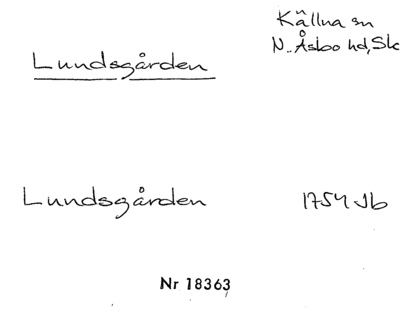 Källna sn
N. Åsbo hd, Sk
Lundsgården
Lundsgården 1754 Jb
Nr 18363